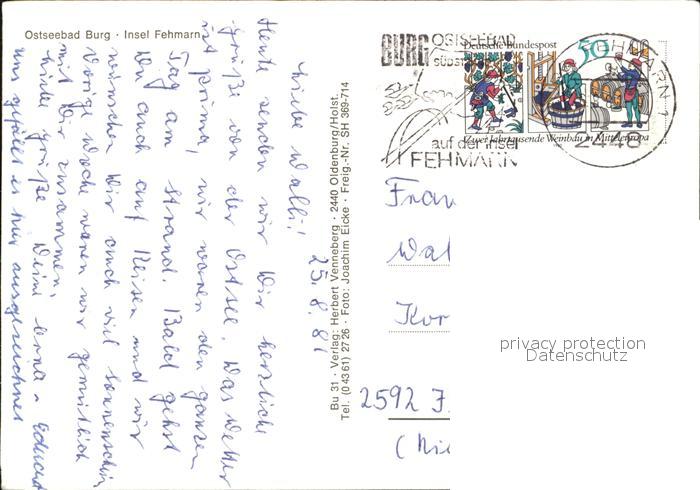 Ostseebad Burg · Insel Fehmarn
Liebe Walli!
Heute senden wir Dir herzliche
Grüße von der Ostsee. Das Wetter
ist prima, wir waren den ganzen
Tag am Strand. Bald gehst
Du auch auf Reisen und wir
wünschen Dir auch viel Sonnenschein
Vorige Woche waren wir gemütlich
mit Dir zusammen,
Liebe Grüße Deine Erna u. Eduard
uns gefällt es hier ausgezeichnet
25.8.81
Bu 31 · Verlag: Herbert Venneberg · 2440 Oldenburg/Holst.
Tel. (0 43 61) 27 26 · Foto: Joachim Eicke · Freig.-Nr. SH 369-714
BURG OSTSEEBAD
SÜDST
auf der Insel
FEHMARN
Deutsche Bundespost
50
Zwei Jahrtausende Weinbau in Mitteleuropa
FEHMARN 1
2448
Frau
Wal
Kor
2592 J
(Nie
privacy protection
Datenschutz